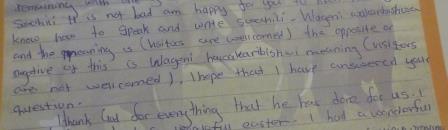 remaining with
Swahili. It is not bad am happy for you to
know how to speak and write Swahili - Wageni wakaribishwa
and the meaning is (Visitors are wellcomed) the opposite or
negative of this is Wageni hawakaribishwi meaning (visitors
are not wellcomed). I hope that I have answered your
question.
I thank God for everything that he has done for us. I
easter. I had a wonderful